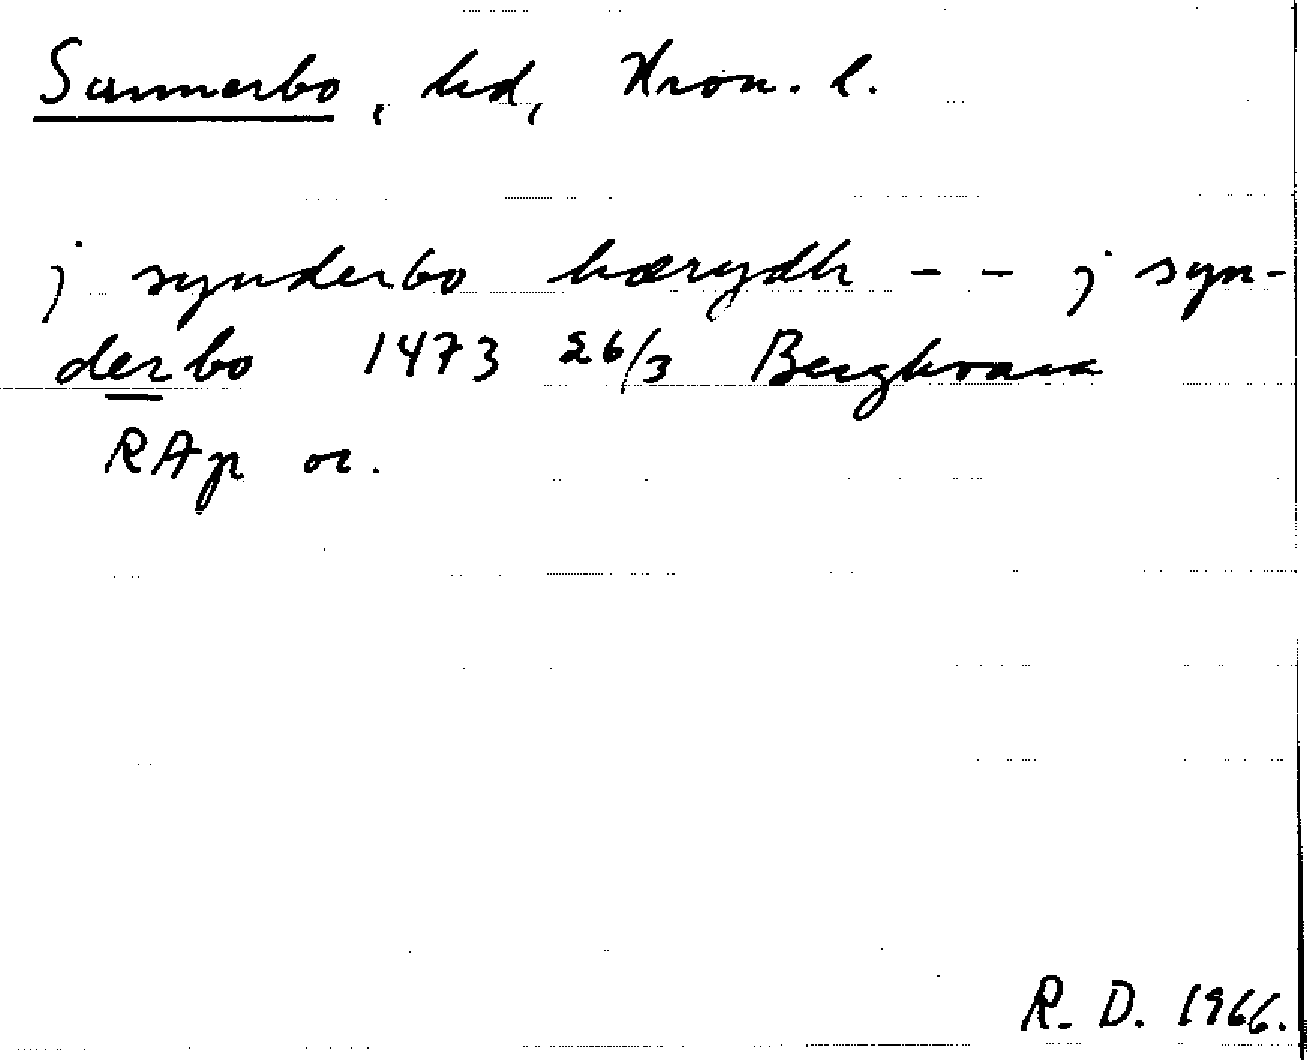 Sunnerbo, hd, Kron. l.
j synderbo hærydh - - j syn-
derbo 1473 26/3 Bergkvara
RAp or.
R. D. 1966.